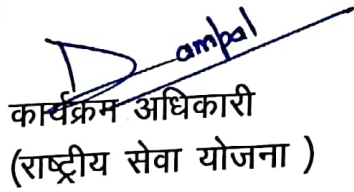 Dampal
कार्यक्रम अधिकारी
(राष्ट्रीय सेवा योजना )